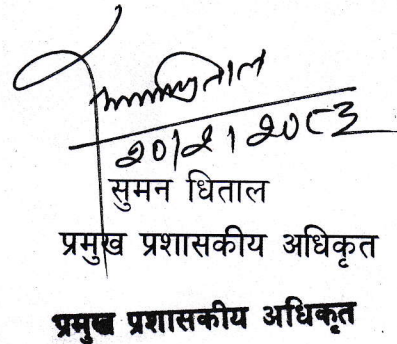 २०।२।२०८३
सुमन धिताल
प्रमुख प्रशासकीय अधिकृत
प्रमुख प्रशासकीय अधिकृत